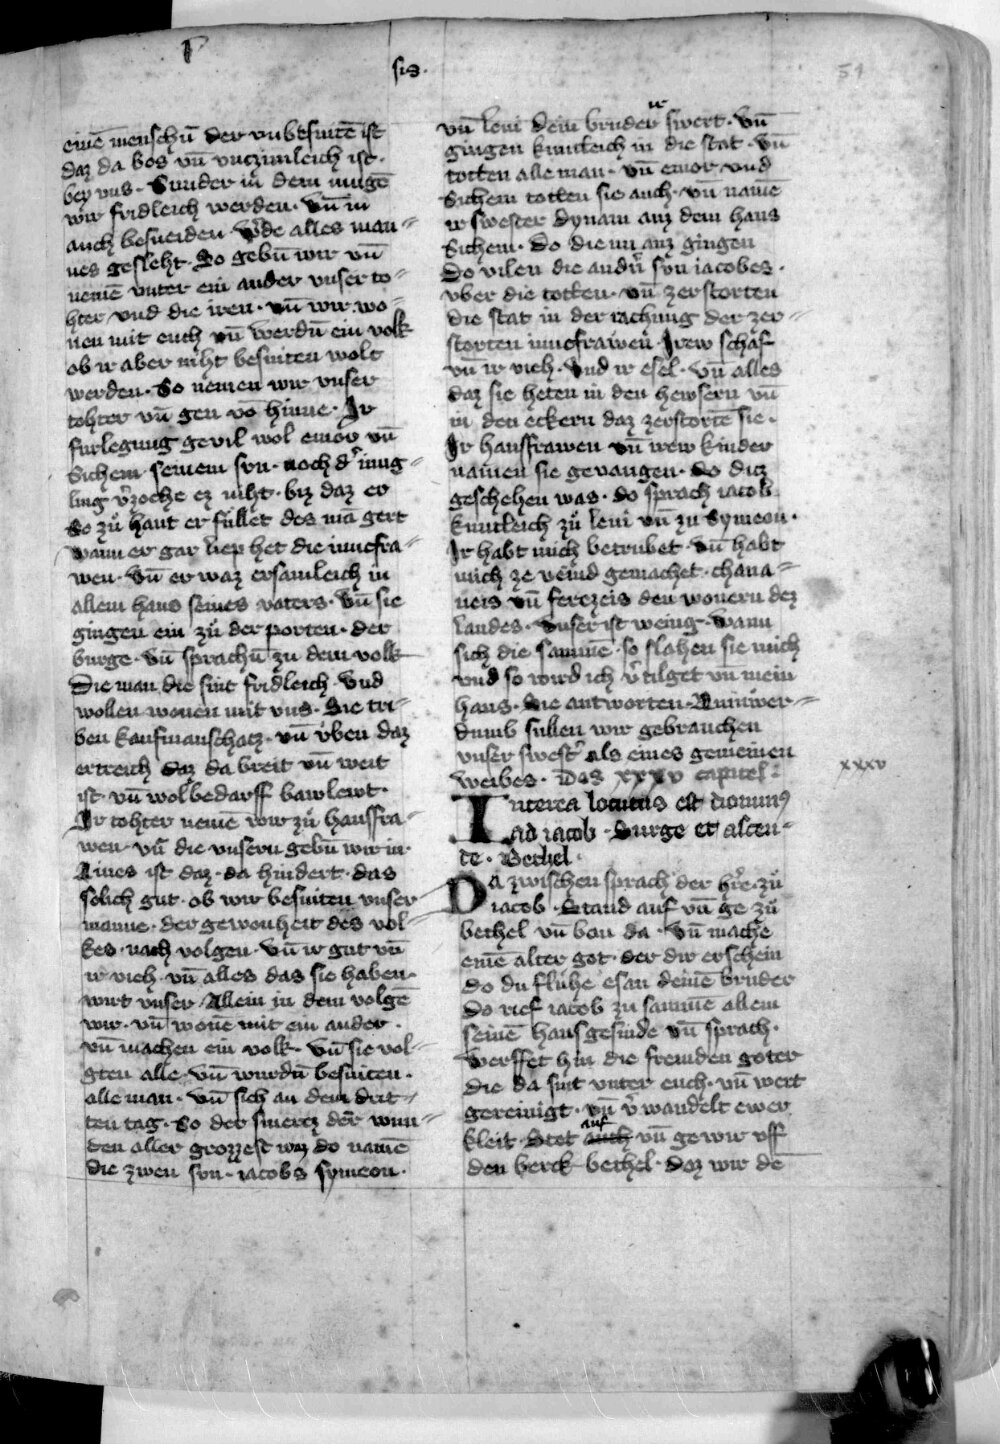 sis.
51
einē menschū der vnbesnitē ist
daz da bos vn̄ vnczimleich ist.
bey vns. Sunder in dem mugē
wir fridleich werden. Vn̄ in
auch besneiden. Werde alles man⸗
nes gesleht. So gebū wir vn̄
nemē vnter ein ander vnser to⸗
hter vnd die iren. vn̄ wir wo⸗
nen mit euch vn̄ werdū ein volk
ob ir aber niht besniten wolt
werden. So nemen wir vnser
tohter vn̄ gen vō hinne. Ir
furlegung gevil wol emor vn̄
Sichem seinem svn. noch dʼ iung⸗
ling vʼzoche ez niht. biz daz er
So zů hant er fullet des mā gert
wann er gar liep het die iuncfra⸗
wen. Vn̄ er waz ersamleich in
allem haus seines vaters. Vn̄ sie
gingen ein zů der porten. der
burge. Vn̄ sprachū zu dem volk
Die man die sint fridleich. Vnd
wollen wonen mit vns. Sie tri⸗
ben kaufmanschatz. vn̄ vʼben daz
ertreich daz da breit vn̄ weit
ist. vn̄ wol bedarff bawlewt.
Ir tohter nemē wir zů hausfra⸗
wen. vn̄ die vnsern gebū wir in.
Aines ist daz. da hindert. das
solich gut. ob wir besniten vnser
manne. der gewonheit des vol⸗
kes. nach volgen. Vn̄ ir gut vn̄
ir vich. vn̄ alles das sie haben.
wirt vnser. Allein in dem volgē
wir. vn̄ wonē mit ein ander.
vn̄ machen ein volk. Vn̄ sie vol⸗
gten alle. vn̄ wurdū besniten.
alle man. Vn̄ sich an dem drit⸗
ten tag. So der smercz der wun⸗
den aller grozzest waz do namē
die zwen svn. iacobs symeon.
vn̄ leui dem bruder ir swert. Vn̄
gingen kuntleich in die stat. Vn̄
totten alle man. vn̄ emor vnd
Sichem totten sie auch. vn̄ namē
ir swester dynam auz dem haus
Sichem. Do die nu auz gingen
Do vilen die andūʼ svn iacobes.
vber die totten. vn̄ zerstorten
die stat in der rachung der zer⸗
storten iuncfrawen. Irew schaf
vn̄ ir vich. Vnd ir esel. Vn̄ alles
daz sie heten in den hewsern vn̄
in den eckern daz zerstortē sie.
Ir hausfrawen vn̄ irew kinder
namen sie gevangen. do dicz
geschehen was. do sprach iacob
kuntleich zů leui vn̄ zu Symeon.
Ir habt mich betrubet. vn̄ habt
mich ze veind gemachet. chana⸗
neis vn̄ ferezeis den wonern dez
landes. Vnser ist wenig. wann
sich die sammē. so slahen sie mich
vnd so wird ich vʼtilget vn̄ mein
haus. Die antworten.
dumb sullen wir gebrauchen
vnser swestʼ als eines gemeinen
weibes. Das xxxv capitel.
xxxv
Interea locutus est dominus
ad iacob. Surge et ascen⸗
de. Bethel.
Da zwischen sprach der hʼre. zů
iacob. Stand auf vn̄ ge zů
bethel vn̄ bau da. vn̄ mache
einē alter got. der dir erschein
do du fluhe esau deinē bruder
Do rief iacob zu sammē allem
seinē hausgesinde vn̄ sprach.
Werffet hin die fremden goter
die da sint vnter euch. vn̄ wert
gereinigt. vn̄ vʼwandelt ewer
kleit. Stet auf vn̄ ge wir vff
den berck bethel. daz wir dē